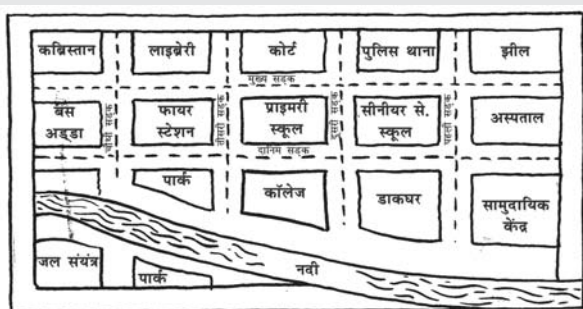 कब्रिस्तान
लाइब्रेरी
कोर्ट
पुलिस थाना
झील
मुख्य सड़क
बस
अड्डा
चौथी सड़क
फायर
स्टेशन
तीसरी सड़क
प्राइमरी
स्कूल
दूसरी सड़क
सीनीयर से.
स्कूल
पहली सड़क
अस्पताल
दानिम सड़क
पार्क
कॉलेज
डाकघर
सामुदायिक
केंद्र
जल संयंत्र
पार्क
नदी